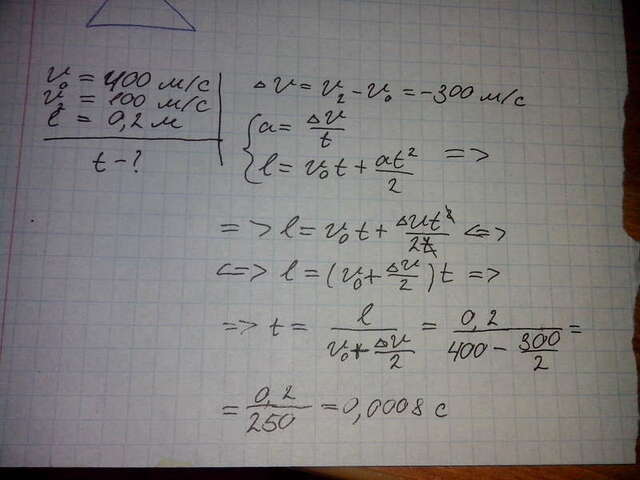 v₀ = 400 м/с
v₂ = 100 м/с
l = 0,2 м
t - ?
Δv = v₂ - v₀ = -300 м/с
{ a = Δv/t
l = v₀t + at²/2 =>
=> l = v₀t + Δvt²/2t <=>
<=> l = (v₀ + Δv/2)t =>
=> t = l/(v₀ + Δv/2) = 0,2/(400 - 300/2) =
= 0,2/250 = 0,0008 с